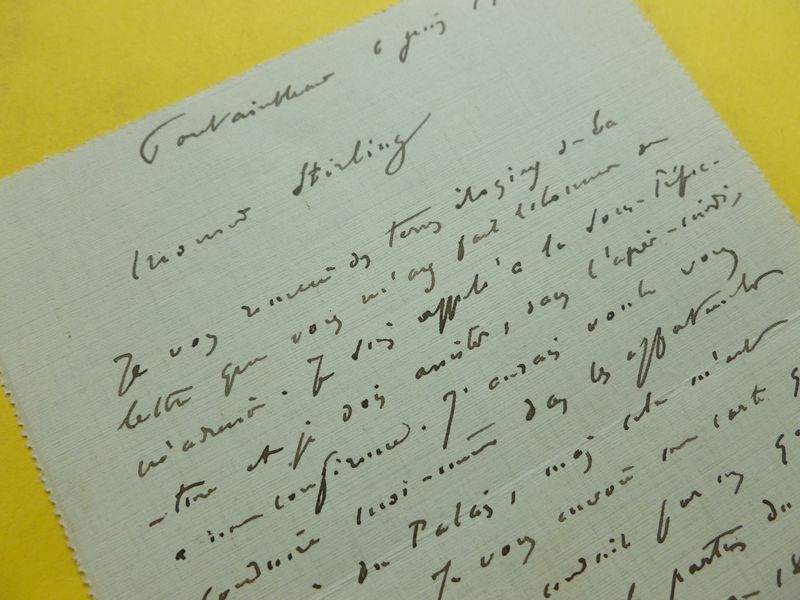 Fontainebleau 6 juin
Monsieur Stirling
Je vous remercie des termes élogieux de la
lettre que vous m'avez fait l'honneur de
m'adresser. Je suis appelé à la Sous-Préfec-
-ture et je dois assister, dans l'après-midi,
à une conférence. J'aurais voulu vous
conduire moi-même dans les appartements
du Palais, mais cela m'est
Je vous envoie une carte
conduit par un
partir du